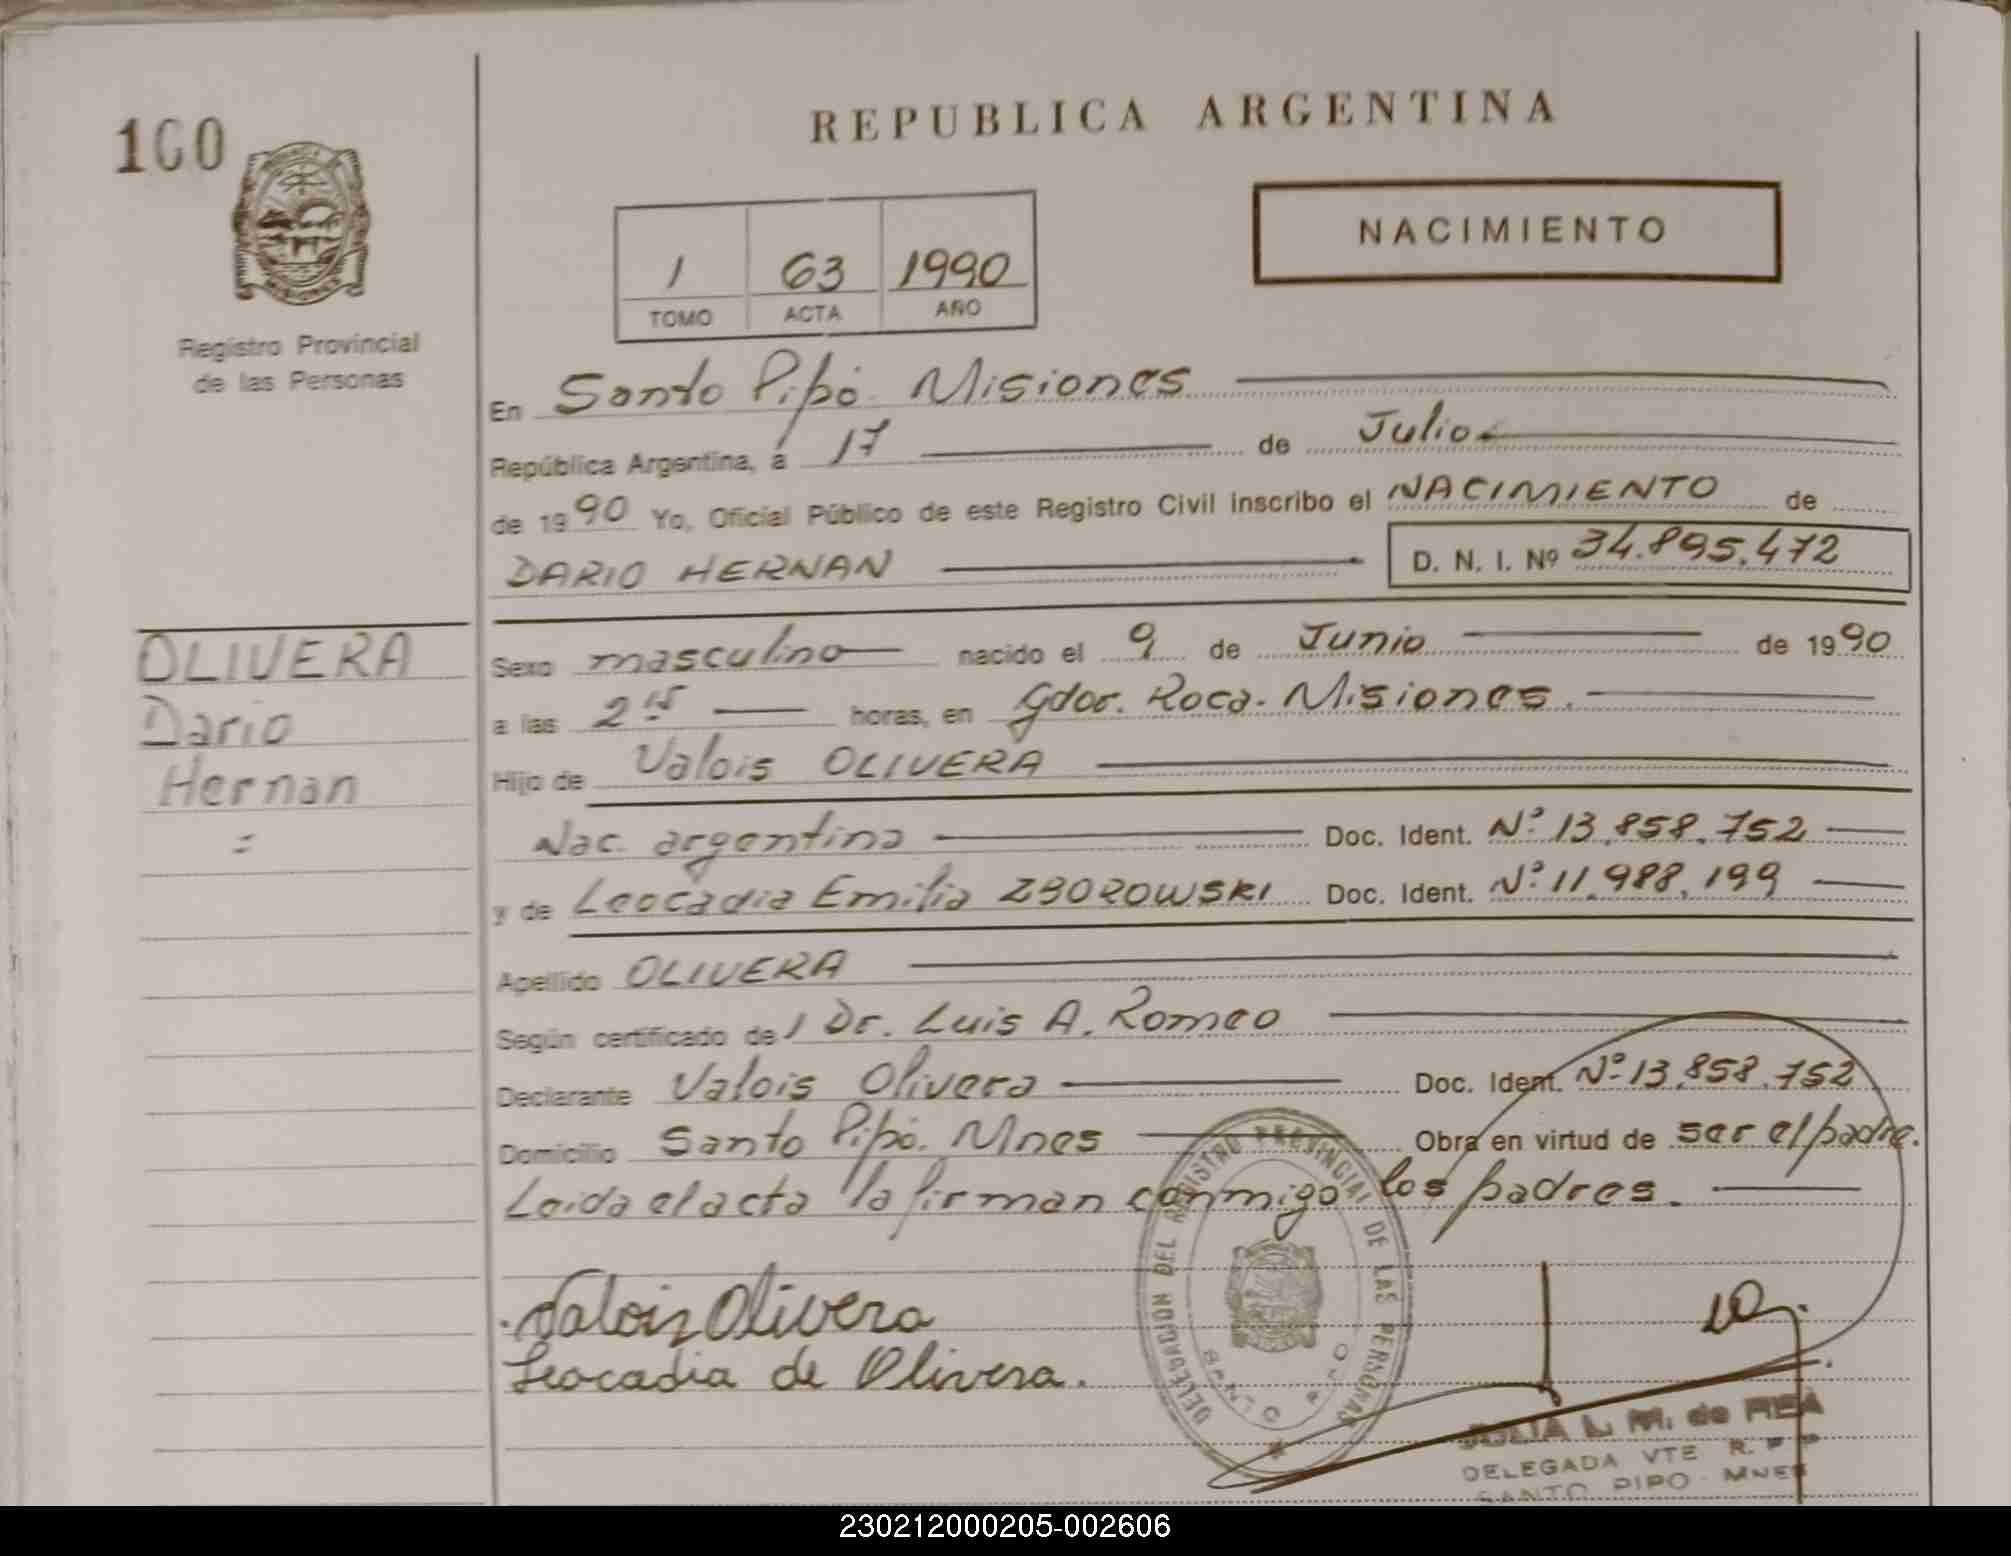 REPUBLICA ARGENTINA
100
NACIMIENTO
1 63 1990
TOMO ACTA AÑO
Registro Provincial
de las Personas
En Santo Pipó. Misiones
República Argentina, a 17 de Julio
de 1990 Yo, Oficial Público de este Registro Civil inscribo el NACIMIENTO de
DARIO HERNAN D. N. I. Nº 34.895.472
OLIVERA
Dario
Hernan
=
Sexo masculino nacido el 9 de Junio de 1990
a las 2 15 horas, en Gdor. Roca. Misiones.
Hijo de Valois OLIVERA
Nac. argentina Doc. Ident. Nº 13.858.752
y de Leocadia Emilia ZBOROWSKI Doc. Ident. Nº 11.988.199
Apellido OLIVERA
Según certificado del Dr. Luis A. Romeo
Declarante Valois Olivera Doc. Ident. Nº 13.858.752
Domicilio Santo Pipó. Mnes Obra en virtud de ser el padre.
Leida el acta la firman conmigo los padres.
Valois Olivera
Leocadia de Olivera.
DELEGACION DEL REGISTRO PROVINCIAL DE LAS PERSONAS
SANTO PIPO
JULIA L. M. de REA
DELEGADA VTE R. P P
SANTO PIPO - MNES
230212000205-002606